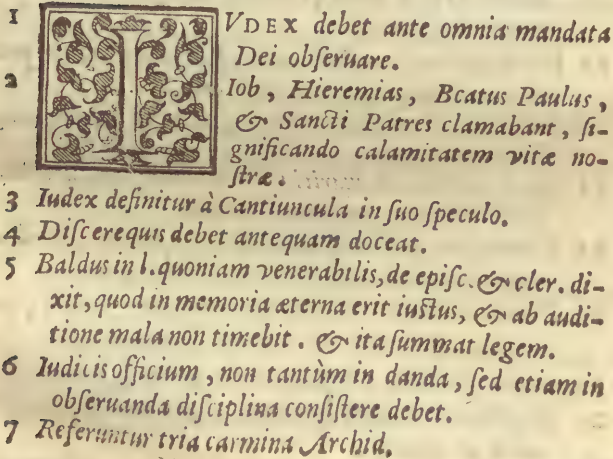 1 IVDEX debet ante omnia mandata
Dei obſeruare.
2 Iob, Hieremias, Beatus Paulus,
& Sancti Patres clamabant, ſi-
gnificando calamitatem vitæ no-
ſtræ.
3 Iudex definitur à Cantiuncula in ſuo ſpeculo.
4 Diſcere quis debet antequam doceat.
5 Baldus in l. quoniam venerabilis, de epiſc. & cler. di-
xit, quod in memoria æterna erit iuſtus, & ab audi-
tione mala non timebit. & ita ſummat legem.
6 Iudicis officium, non tantùm in danda, ſed etiam in
obſeruanda diſciplina conſiſtere debet.
7 Referuntur tria carmina Archid.